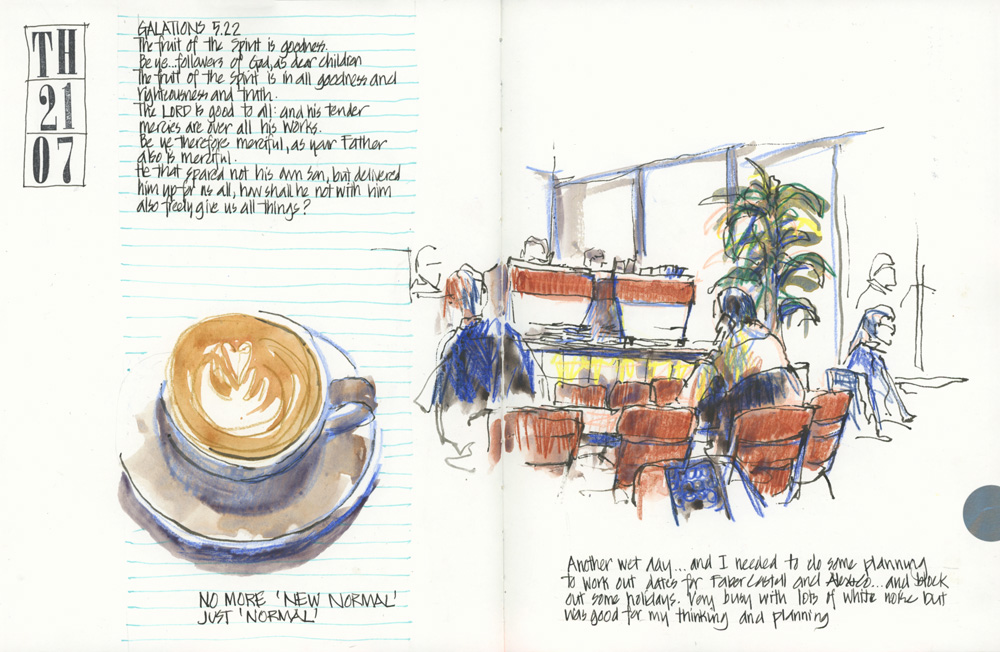 TH
21
07
GALATIONS 5.22
The fruit of the Spirit is goodness.
Be ye...followers of God, as dear children
The fruit of the Spirit is in all goodness and
righteousness and truth.
The LORD is good to all: and his tender
mercies are over all his works.
Be ye therefore merciful, as your Father
also is merciful.
He that spared not his own son, but delivered
him up for us all, how shall he not with him
also freely give us all things?
NO MORE 'NEW NORMAL'
JUST 'NORMAL'
Another wet day... and I needed to do some planning
to work out dates for Faber Castell and ... and block
out some holidays. Very busy with lots of white noise but
was good for my thinking and planning